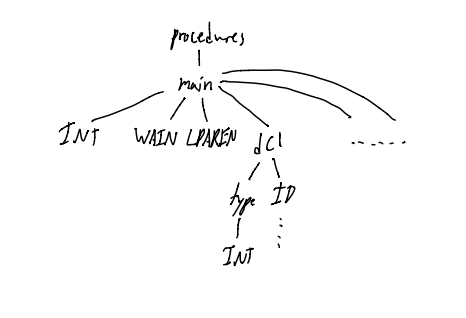 procedures
main
INT WAIN LPAREN dcl ......
type ID
INT